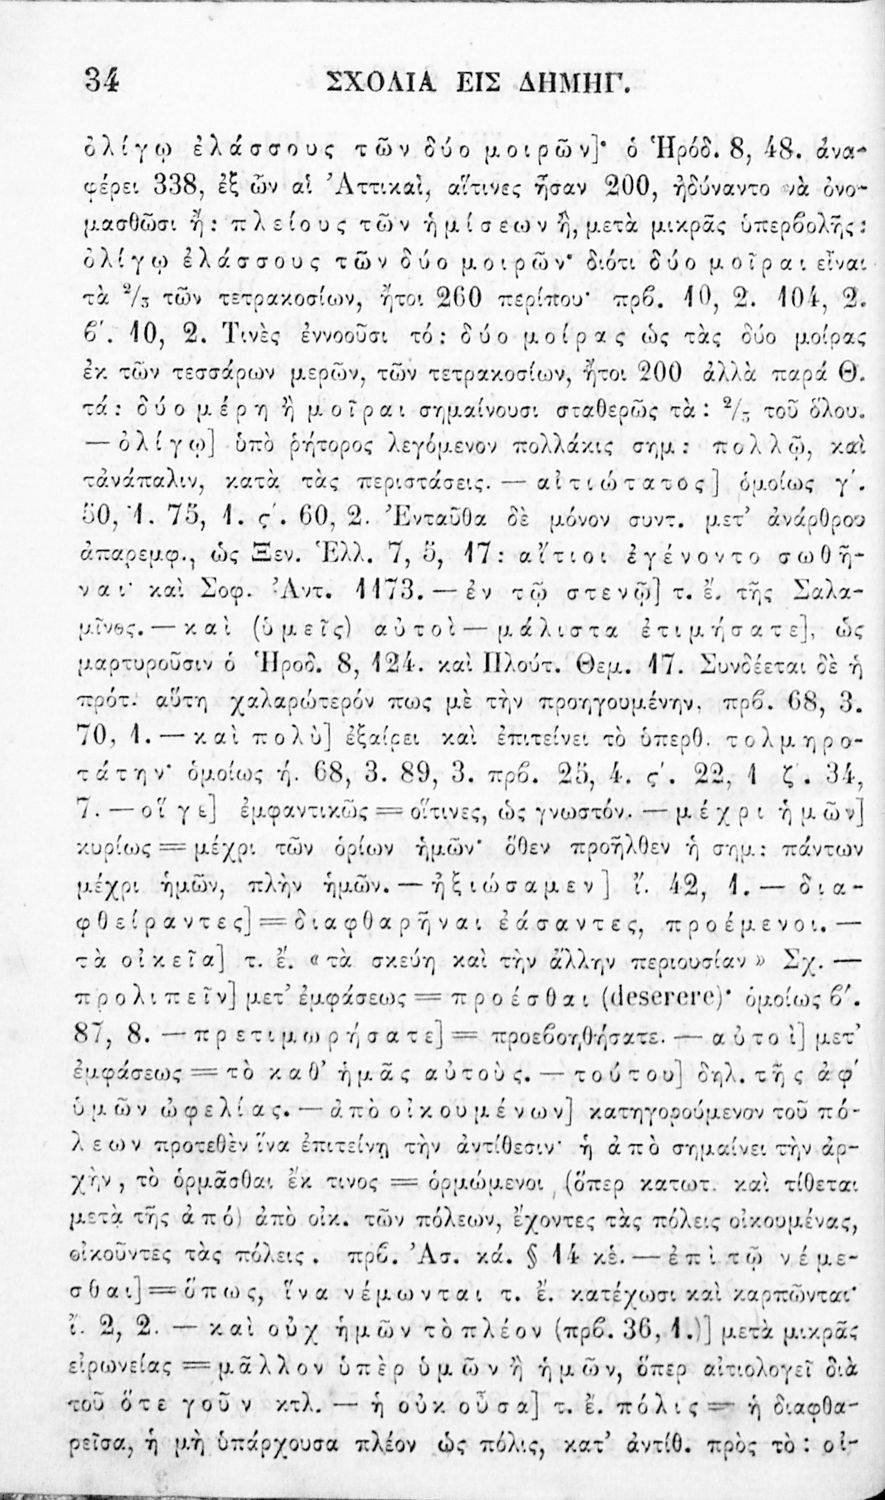 34 ΣΧΟΛΙΑ ΕΙΣ ΔΗΜΗΓ.
ὀλίγῳ ἐλάσσους τῶν δύο μοιρῶν]· ὁ Ἡρόδ. 8, 48. ἀνα-
φέρει 338, ἐξ ὧν αἱ Ἀττικαὶ, αἵτινες ἦσαν 200, ἠδύναντο νὰ ὀνο-
μασθῶσι ἤ: πλείους τῶν ἡμίσεων ἢ, μετὰ μικρᾶς ὑπερβολῆς:
ὀλίγῳ ἐλάσσους τῶν δύο μοιρῶν· διότι δύο μοῖραι εἶναι
τὰ 2/3 τῶν τετρακοσίων, ἤτοι 260 περίπου· πρβ. 10, 2. 104, 2.
β΄. 10, 2. Τινὲς ἐννοοῦσι τό: δύο μοίρας ὡς τὰς δύο μοίρας
ἐκ τῶν τεσσάρων μερῶν, τῶν τετρακοσίων, ἤτοι 200 ἀλλὰ παρά Θ.
τά: δύο μέρη ἢ μοῖραι σημαίνουσι σταθερῶς τὰ: 2/3 τοῦ ὅλου.
— ὀλίγῳ] ὑπὸ ῥήτορος λεγόμενον πολλάκις σημ: πολλῷ, καὶ
τἀνάπαλιν, κατὰ τὰς περιστάσεις. — αἰτιώτατος] ὁμοίως γ΄.
50, 1. 75, 1. ς΄. 60, 2. Ἐνταῦθα δὲ μόνον συντ. μετ' ἀνάρθρου
ἀπαρεμφ., ὡς Ξεν. Ἑλλ. 7, 5, 17: αἴτιοι ἐγένοντο σωθῆ-
ναι· καὶ Σοφ. Ἀντ. 1173. — ἐν τῷ στενῷ] τ. ἔ. τῆς Σαλα-
μῖνος. — καὶ (ὑμεῖς) αὐτοὶ — μάλιστα ἐτιμήσατε], ὡς
μαρτυροῦσιν ὁ Ἡροδ. 8, 124. καὶ Πλούτ. Θεμ. 17. Συνδέεται δὲ ἡ
πρότ. αὕτη χαλαρώτερόν πως μὲ τὴν προηγουμένην, πρβ. 68, 3.
70, 1. — καὶ πολὺ] ἐξαίρει καὶ ἐπιτείνει τὸ ὑπερθ. τολμηρο-
τάτην· ὁμοίως ή. 68, 3. 89, 3. πρβ. 25, 4. ς΄. 22, 1 ζ΄. 34,
7. — οἵ γε] ἐμφαντικῶς = οἵτινες, ὡς γνωστόν. — μέχρι ἡμῶν]
κυρίως = μέχρι τῶν ὁρίων ἡμῶν· ὅθεν προῆλθεν ἡ σημ: πάντων
μέχρι ἡμῶν, πλὴν ἡμῶν. — ἠξιώσαμεν] ἴ. 42, 1. — δια-
φθείραντες] = διαφθαρῆναι ἐάσαντες, προέμενοι. —
τὰ οἰκεῖα] τ. ἔ. «τὰ σκεύη καὶ τὴν ἄλλην περιουσίαν» Σχ. —
προλιπεῖν] μετ' ἐμφάσεως = προέσθαι (deserere)· ὁμοίως β΄.
87, 8. — πρετιμωρήσατε] = προεβοηθήσατε. — αὐτοὶ] μετ'
ἐμφάσεως = τὸ καθ' ἡμᾶς αὐτοὺς. — τούτου] δηλ. τῆς ἀφ'
ὑμῶν ὠφελίας. — ἀπὸ οἰκουμένων] κατηγορούμενον τοῦ πό-
λεων προτεθὲν ἵνα ἐπιτείνῃ τὴν ἀντίθεσιν· ἡ ἀπὸ σημαίνει τὴν ἀρ-
χὴν, τὸ ὁρμᾶσθαι ἔκ τινος = ὁρμώμενοι, (ὅπερ κατωτ. καὶ τίθεται
μετὰ τῆς ἀπό) ἀπὸ οἰκ. τῶν πόλεων, ἔχοντες τὰς πόλεις οἰκουμένας,
οἰκοῦντες τὰς πόλεις. πρβ. Ἀσ. κά. § 14 κἑ. — ἐπὶ τῷ νέμε-
σθαι] = ὅπως, ἵνα νέμωνται τ. ἔ. κατέχωσι καὶ καρπῶνται·
ἴ. 2, 2. — καὶ οὐχ ἡμῶν τὸ πλέον (πρβ. 36, 1.)] μετὰ μικρᾶς
εἰρωνείας = μᾶλλον ὑπὲρ ὑμῶν ἢ ἡμῶν, ὅπερ αἰτιολογεῖ διὰ
τοῦ ὅτε γοῦν κτλ. — ἡ οὐκ οὖσα] τ. ἔ. πόλις = ἡ διαφθα-
ρεῖσα, ἡ μὴ ὑπάρχουσα πλέον ὡς πόλις, κατ' ἀντίθ. πρὸς τὸ: οἰ-